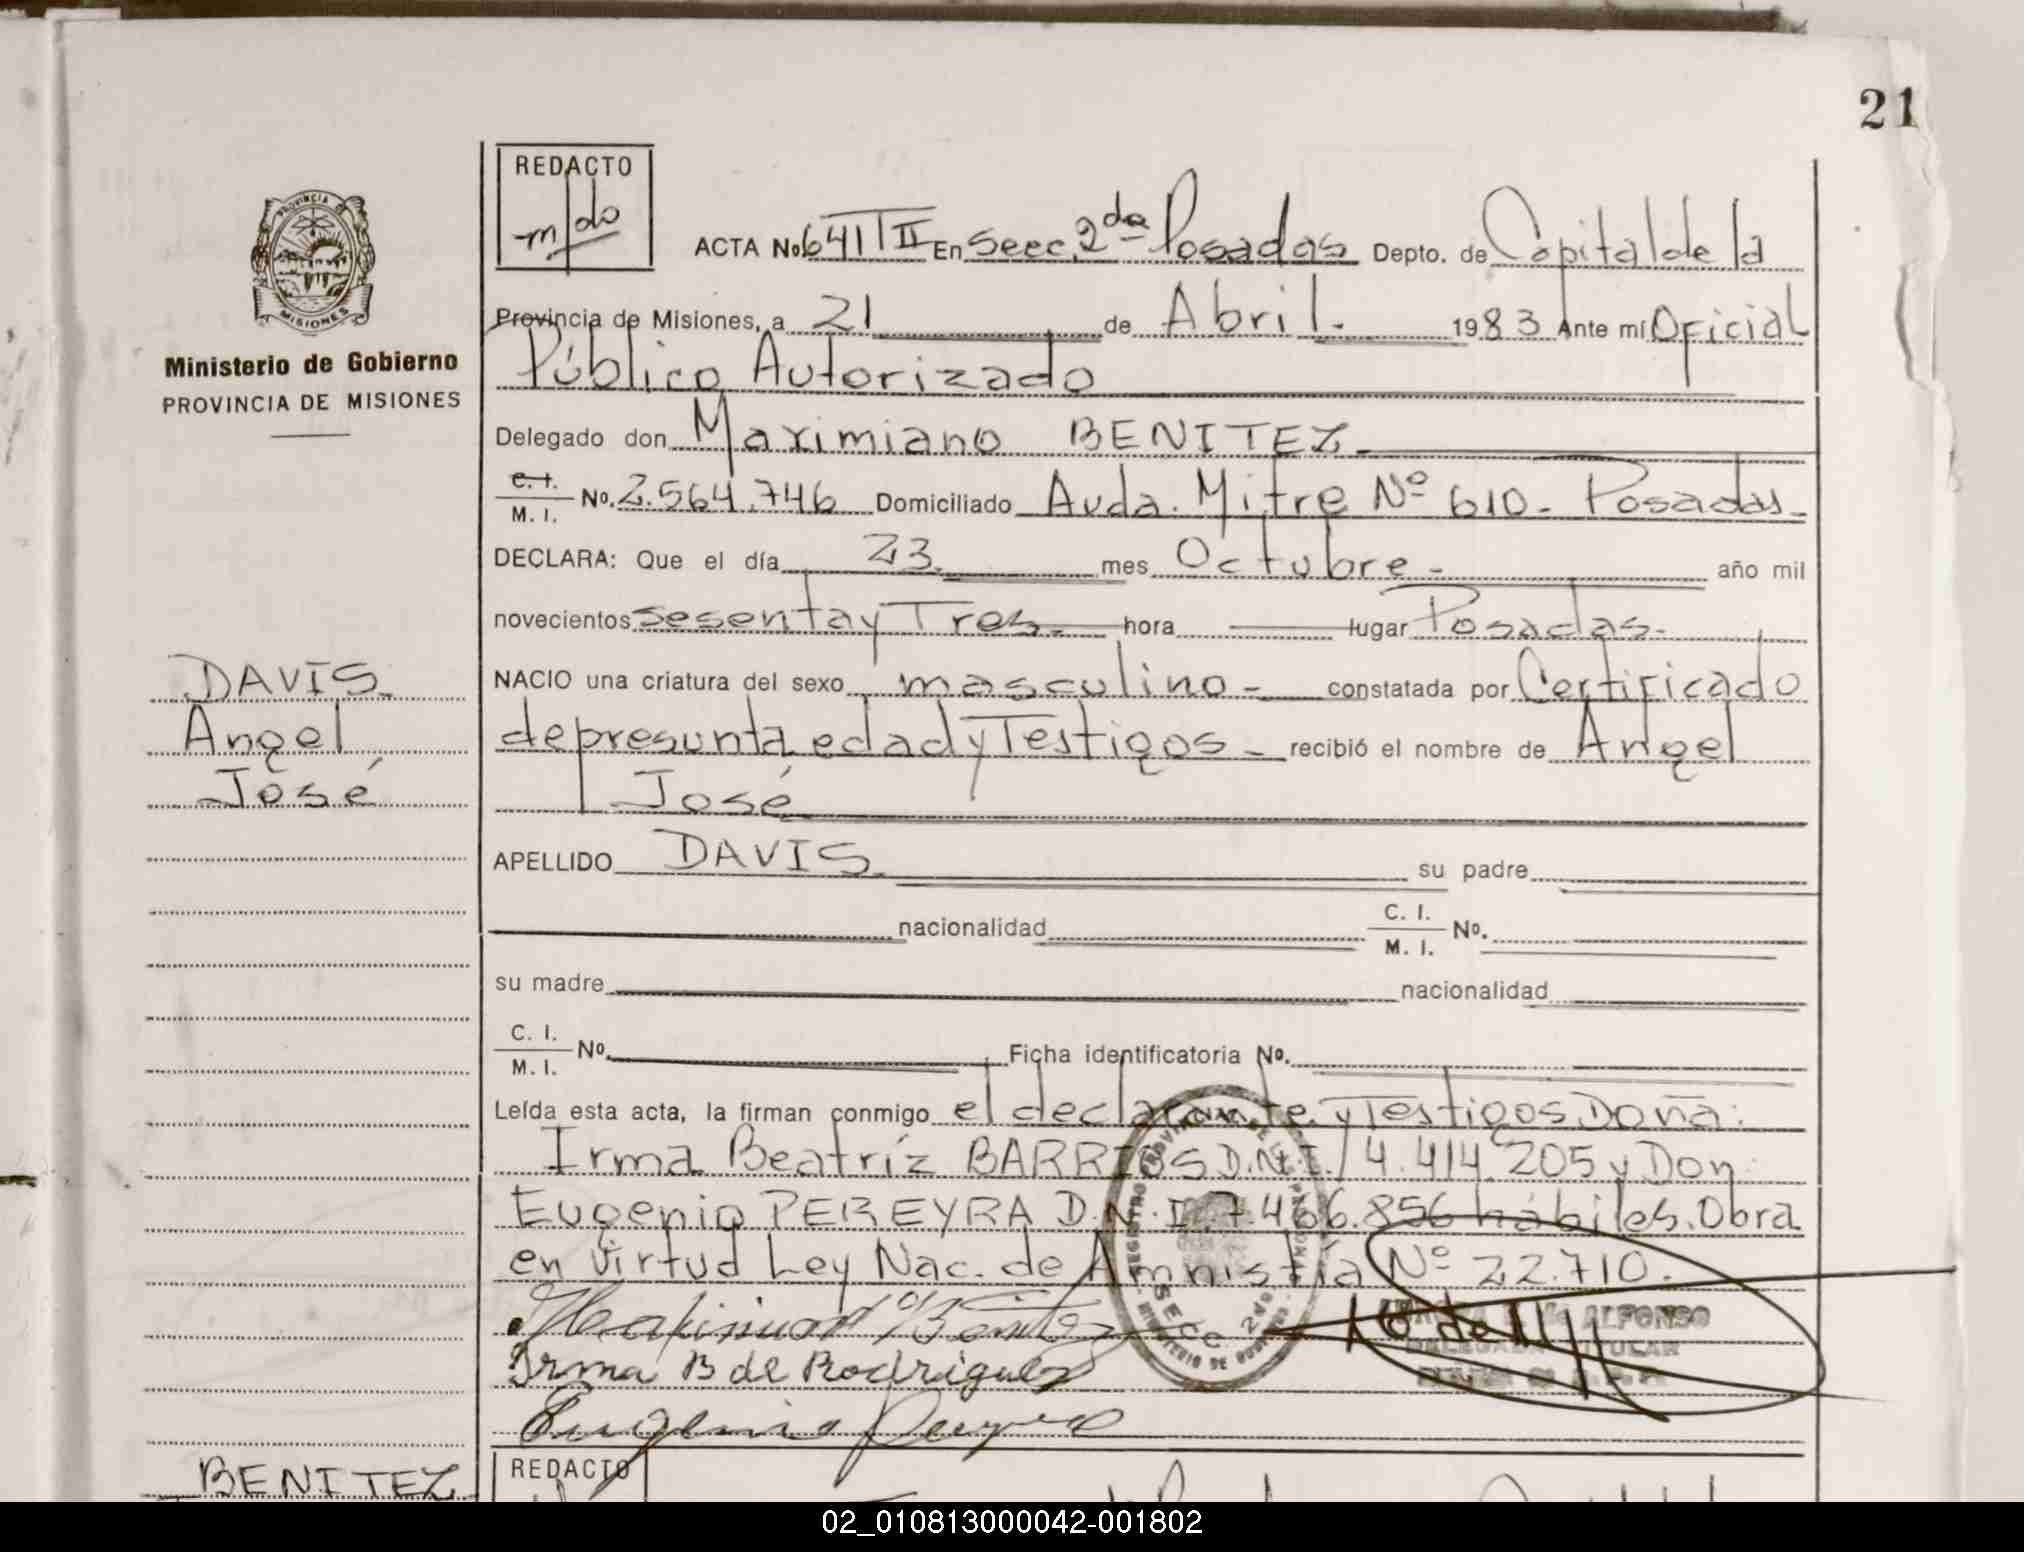 21
REDACTO
m/do
ACTA No 641 T II En Secc. 2da Posadas Depto. de Capital de la
Provincia de Misiones, a 21 de Abril. 1983 Ante mí Oficial
Público Autorizado
Ministerio de Gobierno
PROVINCIA DE MISIONES
Delegado don Maximiano BENITEZ
C. I.
M. I. No. 2.564.746 Domiciliado Avda. Mitre Nº 610- Posadas-
DECLARA: Que el día 23 mes Octubre- año mil
novecientos sesenta y Tres- hora lugar Posadas-
DAVIS
Angel
José
NACIO una criatura del sexo masculino- constatada por Certificado
de presunta edad y Testigos- recibió el nombre de Angel
José
APELLIDO DAVIS su padre
nacionalidad C. I.
M. I. No.
su madre nacionalidad
C. I.
M. I. No. Ficha identificatoria No.
Leída esta acta, la firman conmigo el declarante y Testigos Doña:
Irma Beatríz BARRIOS D.N.I. 4.414.205 y Don
Eugenio PEREYRA D.N.I. 7.466.856 hábiles. Obra
en virtud Ley Nac. de Amnistía Nº 22.710.
Maximiano Benitez
Irma B de Rodriguez
Eugenio Pereyra
de ALFONSO
DELEGADA TITULAR
SECC 2da
BENITEZ
REDACTO
02_010813000042-001802